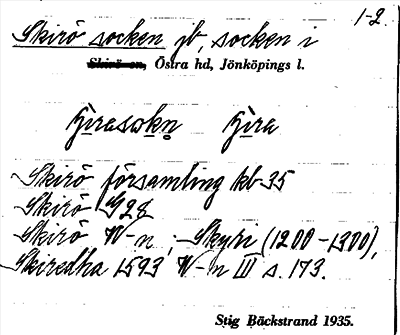 1-2.
Skirö socken jb, socken i
Skirö sn, Östra hd, Jönköpings l.
s̲j̲irasokn s̲j̲ira
Skirö församling kb 35
Skirö G28
Skirö W-n; Skyri (1200-1300),
Skiredha 1593 W-n III s. 173.
Stig Bäckstrand 1935.